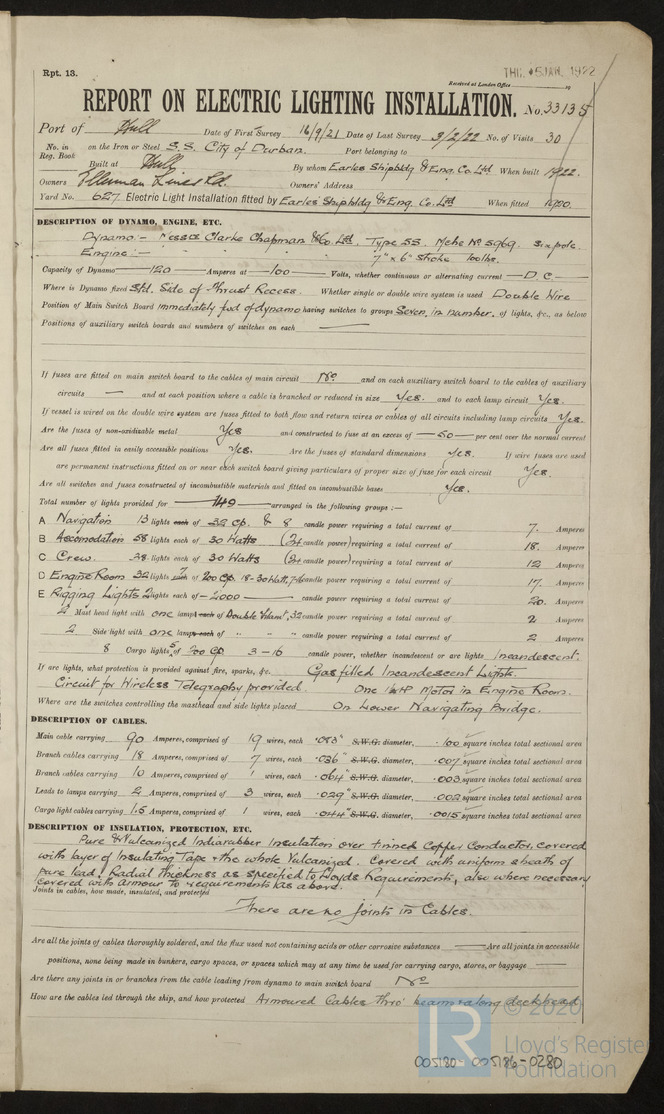 Rpt. 13.
THU. 5 JAN. 1922
Received at London Office
REPORT ON ELECTRIC LIGHTING INSTALLATION. No. 33135
Port of Hull Date of First Survey 16/9/21 Date of Last Survey 3/2/22 No. of Visits 30
No. in Reg. Book on the Iron or Steel S.S. City of Durban. Port belonging to
Built at Hull By whom Earles Shipbldg & Eng. Co. Ltd When built 1922.
Owners Ellerman Lines Ld. Owners' Address
Yard No. 627 Electric Light Installation fitted by Earles Shipbldg & Eng. Co. Ltd When fitted 1920.
DESCRIPTION OF DYNAMO, ENGINE, ETC.
Dynamo :- Messrs Clarke Chapman & Co. Ltd. Type SS. Mche No 5969. six pole.
Engine :- 7" x 6" stroke 100lbs.
Capacity of Dynamo 120 Amperes at 100 Volts, whether continuous or alternating current D.C.
Where is Dynamo fixed Stbd. Side of thrust Recess. Whether single or double wire system is used Double Wire
Position of Main Switch Board immediately fwd of dynamo having switches to groups Seven in number. of lights, &c., as below
Positions of auxiliary switch boards and numbers of switches on each
If fuses are fitted on main switch board to the cables of main circuit No and on each auxiliary switch board to the cables of auxiliary
circuits — and at each position where a cable is branched or reduced in size Yes. and to each lamp circuit Yes.
If vessel is wired on the double wire system are fuses fitted to both flow and return wires or cables of all circuits including lamp circuits Yes.
Are the fuses of non-oxidizable metal Yes and constructed to fuse at an excess of 50 per cent over the normal current
Are all fuses fitted in easily accessible positions Yes. Are the fuses of standard dimensions Yes. If wire fuses are used
are permanent instructions fitted on or near each switch board giving particulars of proper size of fuse for each circuit Yes.
Are all switches and fuses constructed of incombustible materials and fitted on incombustible bases Yes.
Total number of lights provided for 149 arranged in the following groups :—
A Navigation 13 lights each of 32 cp. & 8 candle power requiring a total current of 7. Amperes
B Accomodation 58 lights each of 30 Watts (24 candle power) requiring a total current of 18. Amperes
C Crew. 38 lights each of 30 Watts (24 candle power) requiring a total current of 12 Amperes
D Engine Room 32 lights each 7 of 200 cp. 18-30 Watt, 7-16 candle power requiring a total current of 17. Amperes
E Rigging Lights 2 lights each of 2000 candle power requiring a total current of 20. Amperes
2 Mast head light with one lamps each of Double filamt, 32 candle power requiring a total current of 2 Amperes
2 Side light with one lamps each of " " " candle power requiring a total current of 2 Amperes
8 Cargo lights 5 of 200 cp 3 - 16 candle power, whether incandescent or arc lights Incandescent.
If arc lights, what protection is provided against fire, sparks, &c. Gas filled Incandescent Lights.
Circuit for Wireless Telegraphy provided. One HP Motor in Engine Room.
Where are the switches controlling the masthead and side lights placed On Lower Navigating Bridge.
DESCRIPTION OF CABLES.
Main cable carrying 90 Amperes, comprised of 19 wires, each .083" S.W.G. diameter, .100 square inches total sectional area
Branch cables carrying 18 Amperes, comprised of 7 wires, each .036" S.W.G. diameter, .007 square inches total sectional area
Branch cables carrying 10 Amperes, comprised of 1 wires, each .064" S.W.G. diameter, .003 square inches total sectional area
Leads to lamps carrying 2 Amperes, comprised of 3 wires, each .029" S.W.G. diameter, .002 square inches total sectional area
Cargo light cables carrying 1.5 Amperes, comprised of 1 wires, each .044" S.W.G. diameter, .0015 square inches total sectional area
DESCRIPTION OF INSULATION, PROTECTION, ETC.
Pure & Vulcanized Indiarubber Insulation over tinned Copper Conductor, covered
with layer of Insulating Tape & the whole Vulcanized. Covered with uniform sheath of
pure lead. Radial thickness as specified to Lloyds Requirements, also where necessary
covered with Armour to requirements as above.
Joints in cables, how made, insulated, and protected
There are no Joints in Cables.
Are all the joints of cables thoroughly soldered, and the flux used not containing acids or other corrosive substances — Are all joints in accessible
positions, none being made in bunkers, cargo spaces, or spaces which may at any time be used for carrying cargo, stores, or baggage —
Are there any joints in or branches from the cable leading from dynamo to main switch board No
How are the cables led through the ship, and how protected Armoured Cables thro' beams along deckhead
© 2020
LR
Lloyd's Register
Foundation
005180-005186-0280